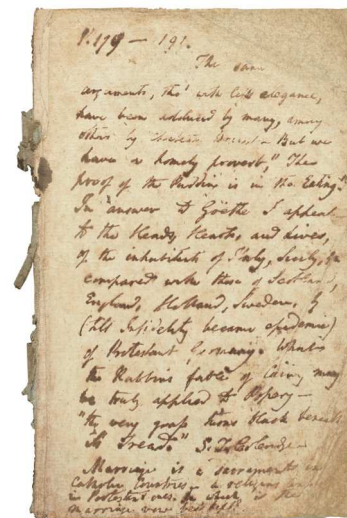 P. 179 — 191.
The same
arguments, tho' with less elegance,
have been adduced by many, among
others by — But we
have a homely proverb, "The
proof of the Pudding is in the Eating."
In answer to Göethe I appeal
to the Heads, Hearts, and Lives,
of the inhabitants of Italy, Sicily, &c
compared with those of Scotland,
England, Holland, Sweden, &
(till Infidelity became epidemic)
of Protestant Germany. What
the Rabbins fable of Cain, may
be truly applied to Popery—
"the very grass turns black beneath
its Tread." S. T. Coleridge—
Marriage is a sacrament in
Catholic Countries — a religious
in Protestant ones. In which is the
marriage vow best kept?